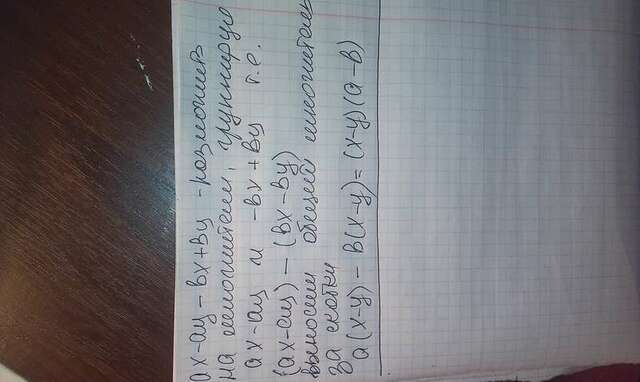 ax-ay-вx+вy - разложив
на множители, группирую
ax-ay и -вx+вy т.е.
(ax-ay) - (вx-вy)
выносим общий множитель
за скобки
a(x-y) - в(x-y) = (x-y)(a-в)